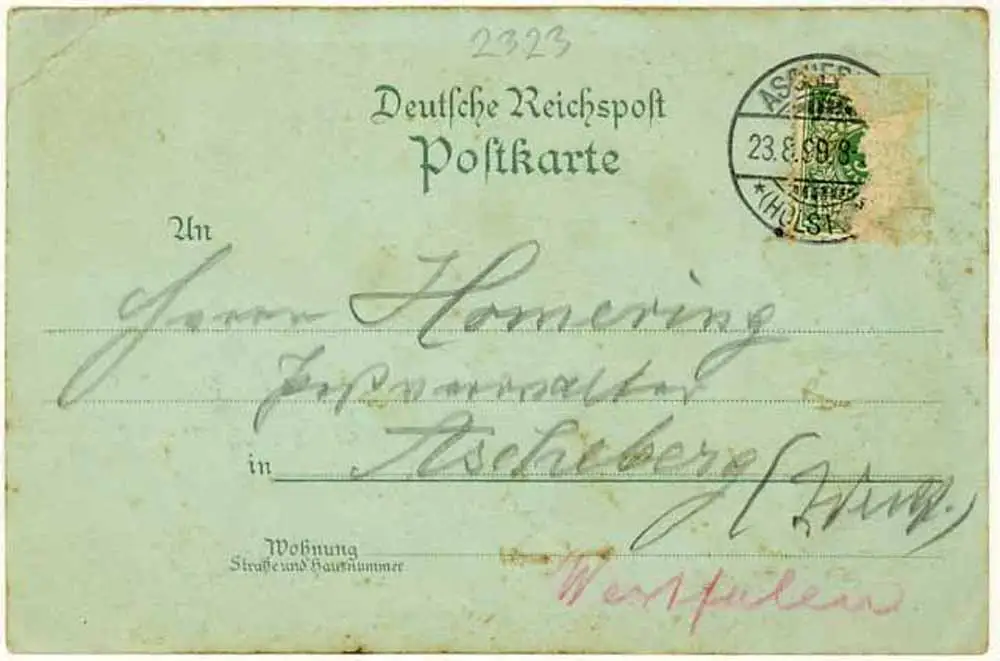 2323
Deutsche Reichspost
Postkarte
ASCHEB
23.8.99. 8-
*(HOLST
An
Herrn Homering
Postverwalter
in Ascheberg (Westf.)
Wohnung
Straße und Hausnummer
Westfalen